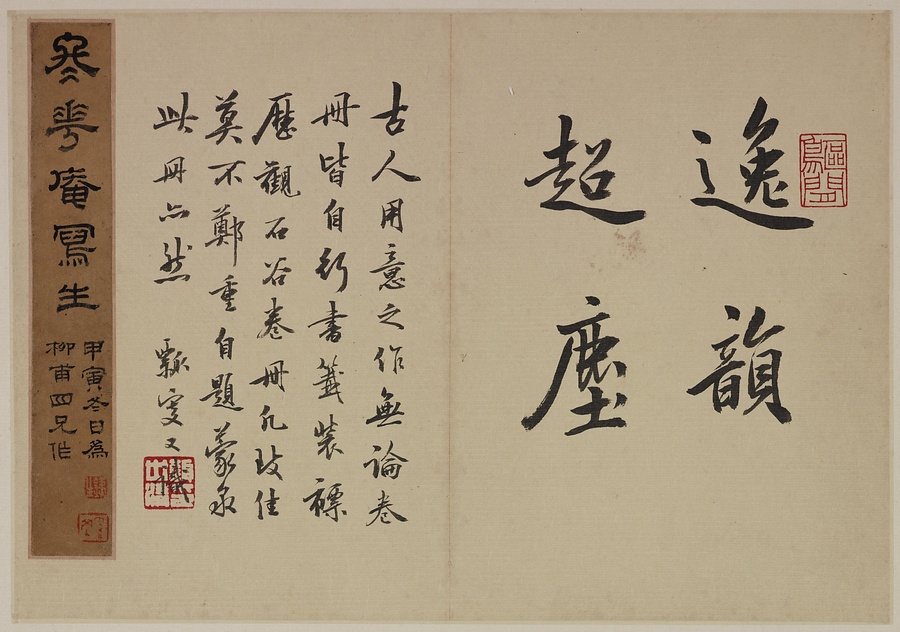 逸韻
超塵
古人用意之作無論卷
冊皆自行書籤裝褾
歷觀石谷卷冊凡佳
莫不鄭重自題蒙泉
此冊亦然 瓢叟又識
冬花庵寫生
甲寅冬日為
柳甫四兄作